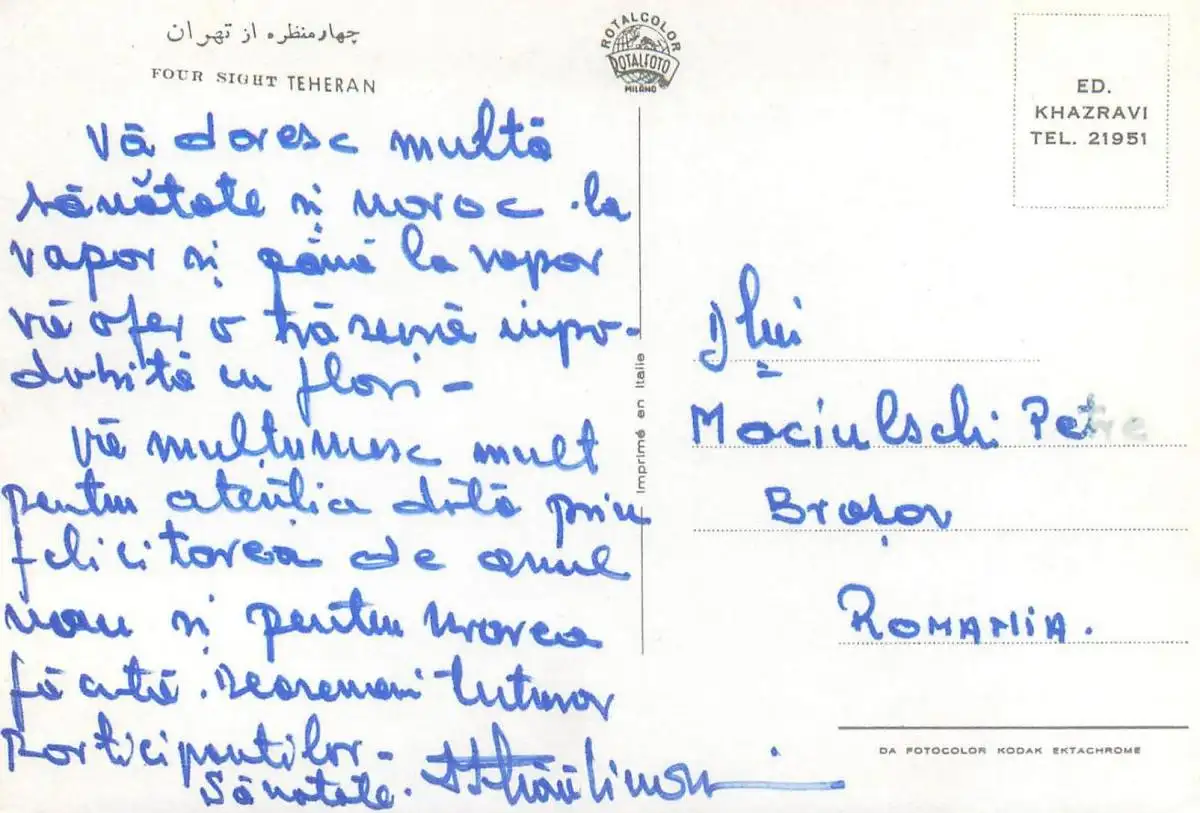 چهارمنظره از تهران
FOUR SIGHT TEHERAN
ROTALCOLOR
ROTALFOTO
MILANO
ED.
KHAZRAVI
TEL. 21951
Vă doresc multă
sănătate și noroc la
vapor și până la vapor
vă ofer o trăsură împo-
dobită cu flori –
Vă mulțumesc mult
pentru atenția dată prin
felicitarea de anul
nou și pentru urarea
făcută. Deasemeni tuturor
Participanților –
Sănătate.
Imprimé en Italie
Dlui
Maciulschi Petre
Brașov
ROMANIA.
DA FOTOCOLOR KODAK EKTACHROME